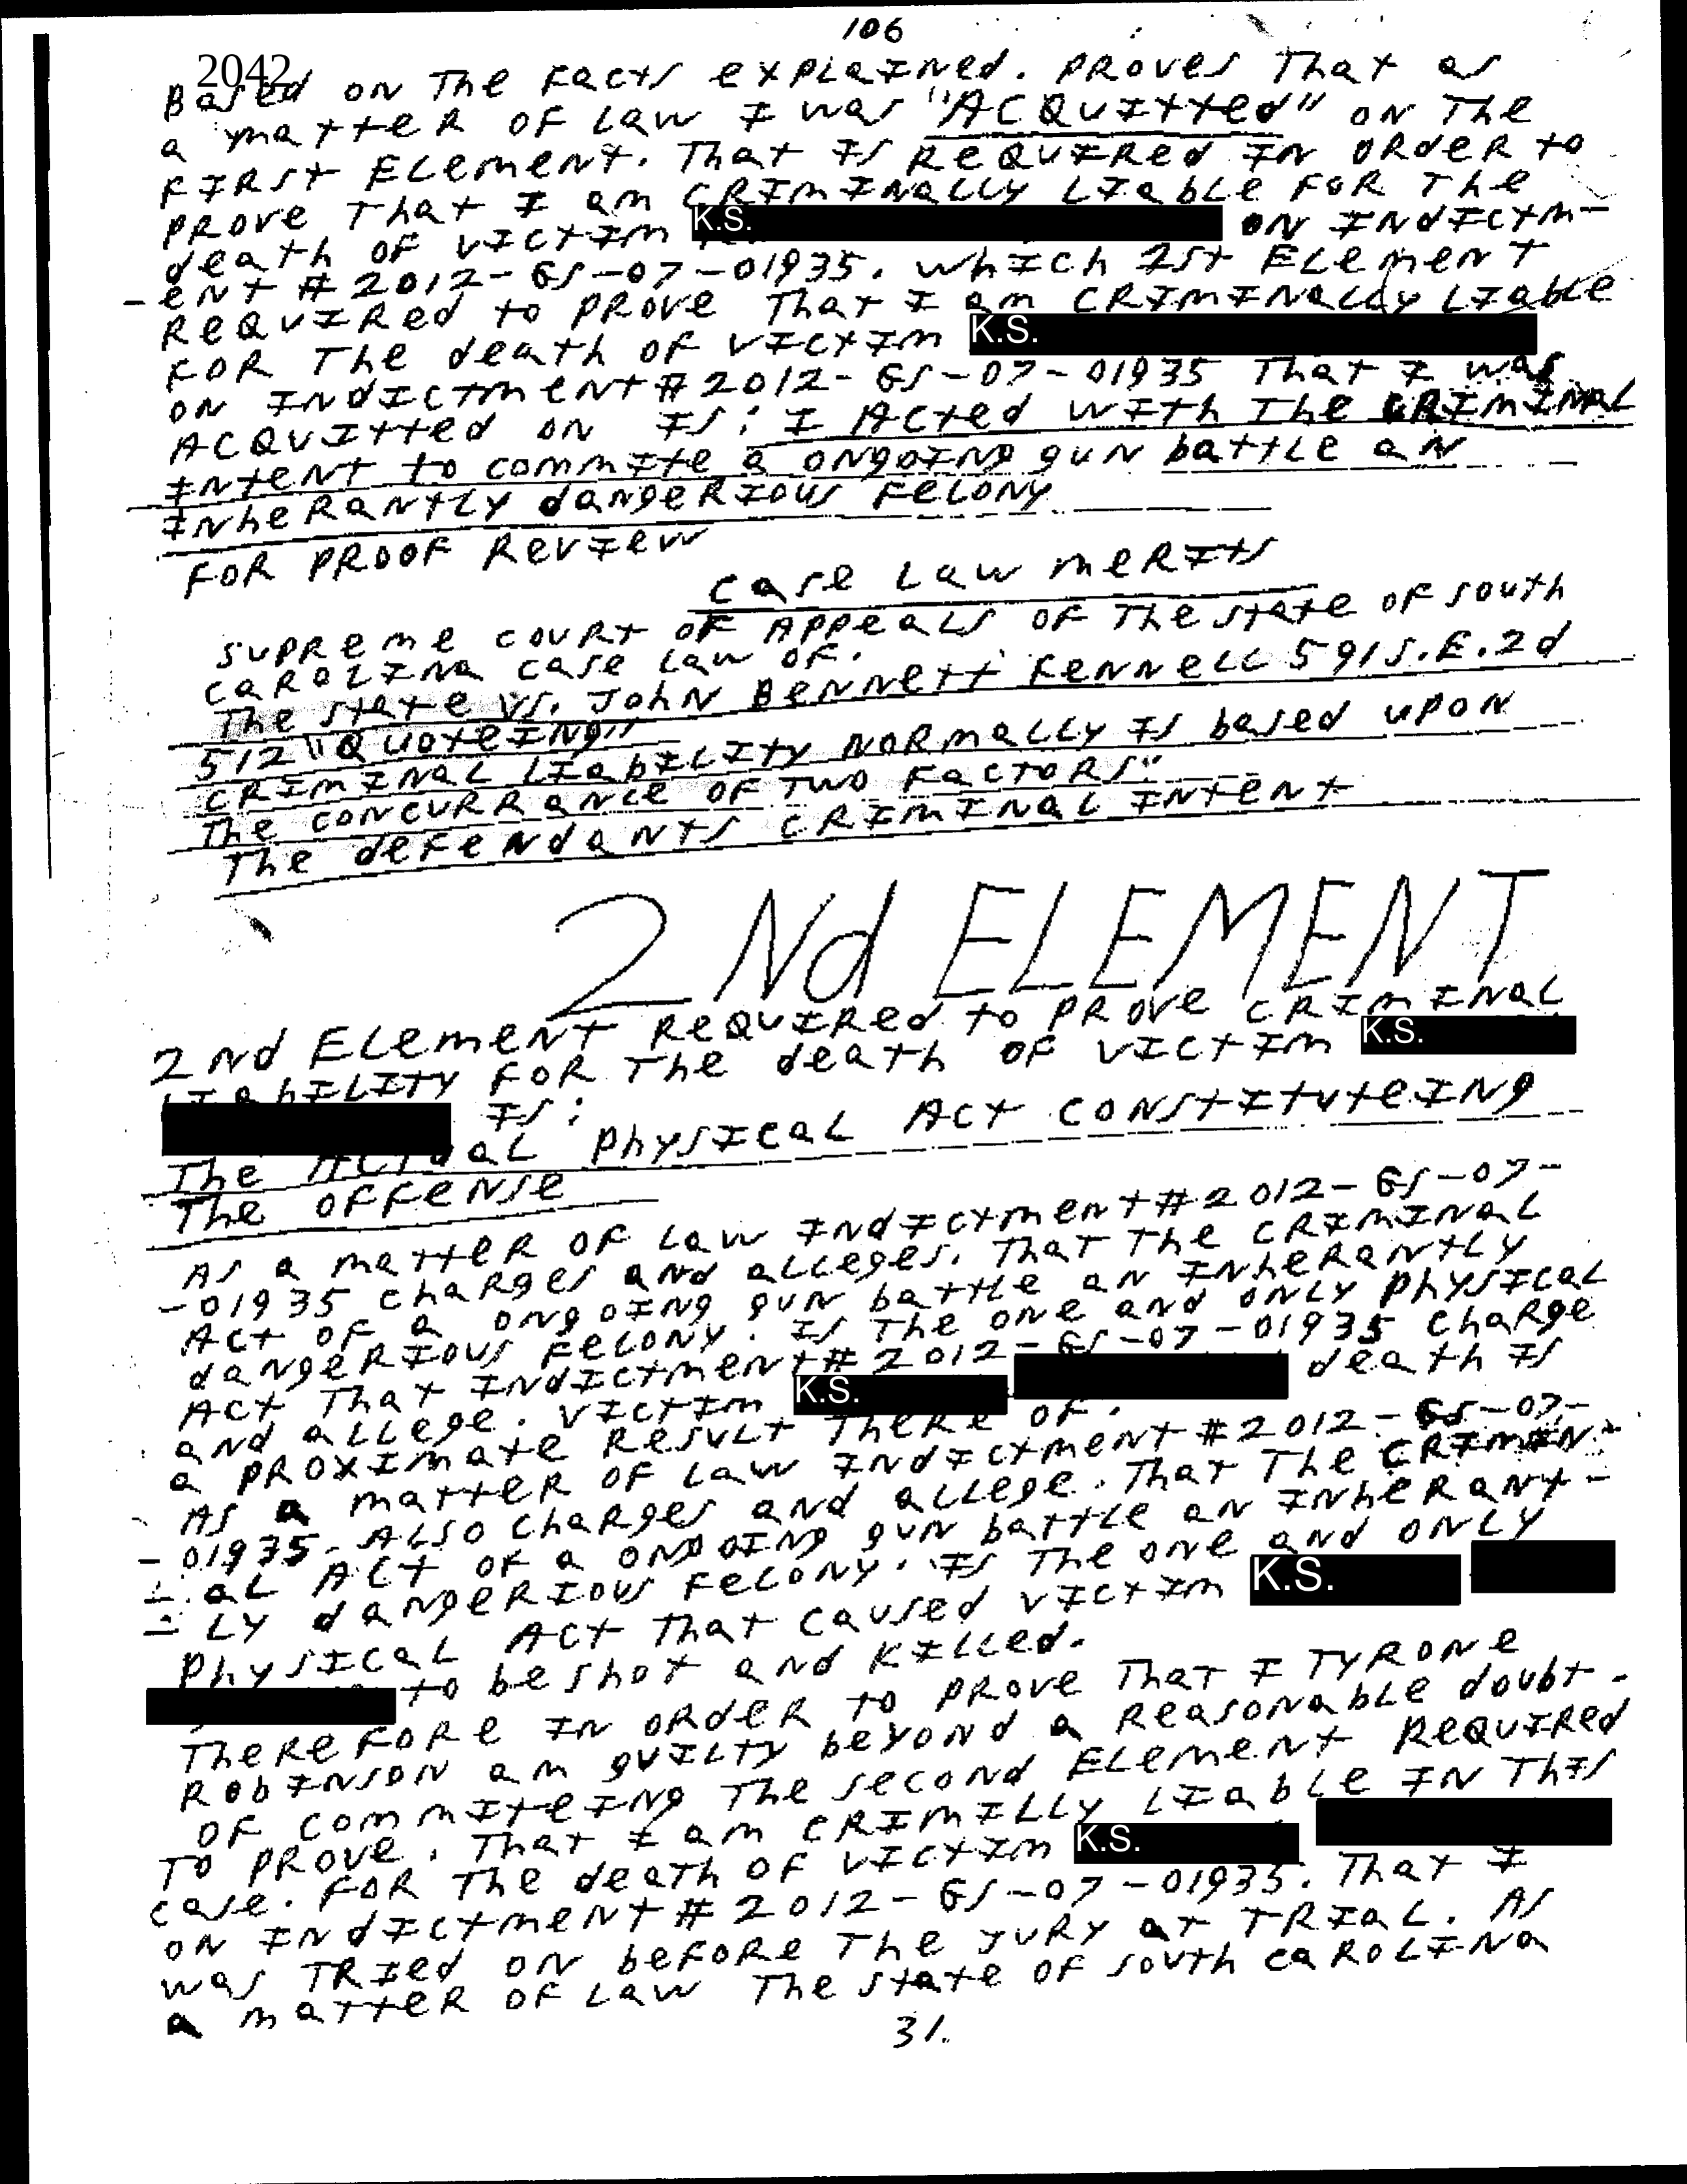 106
2042
Based on The Facts explained. proves That as
a matter of law I was "Acquitted" on The
First Element. That is required in order to
prove That I am criminally liable for The
death of victim K.S. on Indictm-
-ent # 2012-GS-07-01935. which 1st Element
required to prove That I am criminally liable
for The death of victim K.S.
on Indictment # 2012-GS-07-01935 That I was
Acquitted on is: I Acted with The criminal
intent to commite a ongoing gun battle an
inherantly dangerious felony
for proof review
case law merits
supreme court of Appeals of The state of south
carolina case law of.
The state vs. John Bennett Fennell 591 S.E.2d
512 "Quoteing"
criminal liability normally is based upon
The concurrance of two factors"
The defendants criminal intent
2Nd ELEMENT
2nd Element required to prove criminal
liability for The death of victim K.S.
is:
The Actual physical Act constituteing
The offense
As a matter of law indictment # 2012-GS-07-
-01935 charges and alleges. That The criminal
Act of a ongoing gun battle an inherantly
dangerious felony. is The one and only physical
Act That indictment # 2012-GS-07-01935 charge
and allege. victim K.S. death is
a proximate result There of.
As a matter of law indictment # 2012-GS-07-
-01935. Also charges and allege. That The crimin-
-al Act of a ongoing gun battle an inherant-
-ly dangerious felony. is The one and only
physical Act That caused victim K.S.
to be shot and killed.
Therefore in order to prove That I Tyrone
Robinson am guilty beyond a reasonable doubt.
of commiteing The second Element required
to prove. That I am crimilly liable in This
case. for The death of victim K.S.
on indictment # 2012-GS-07-01935. That I
was tried on before The jury at trial. As
a matter of law The state of south carolina
31.